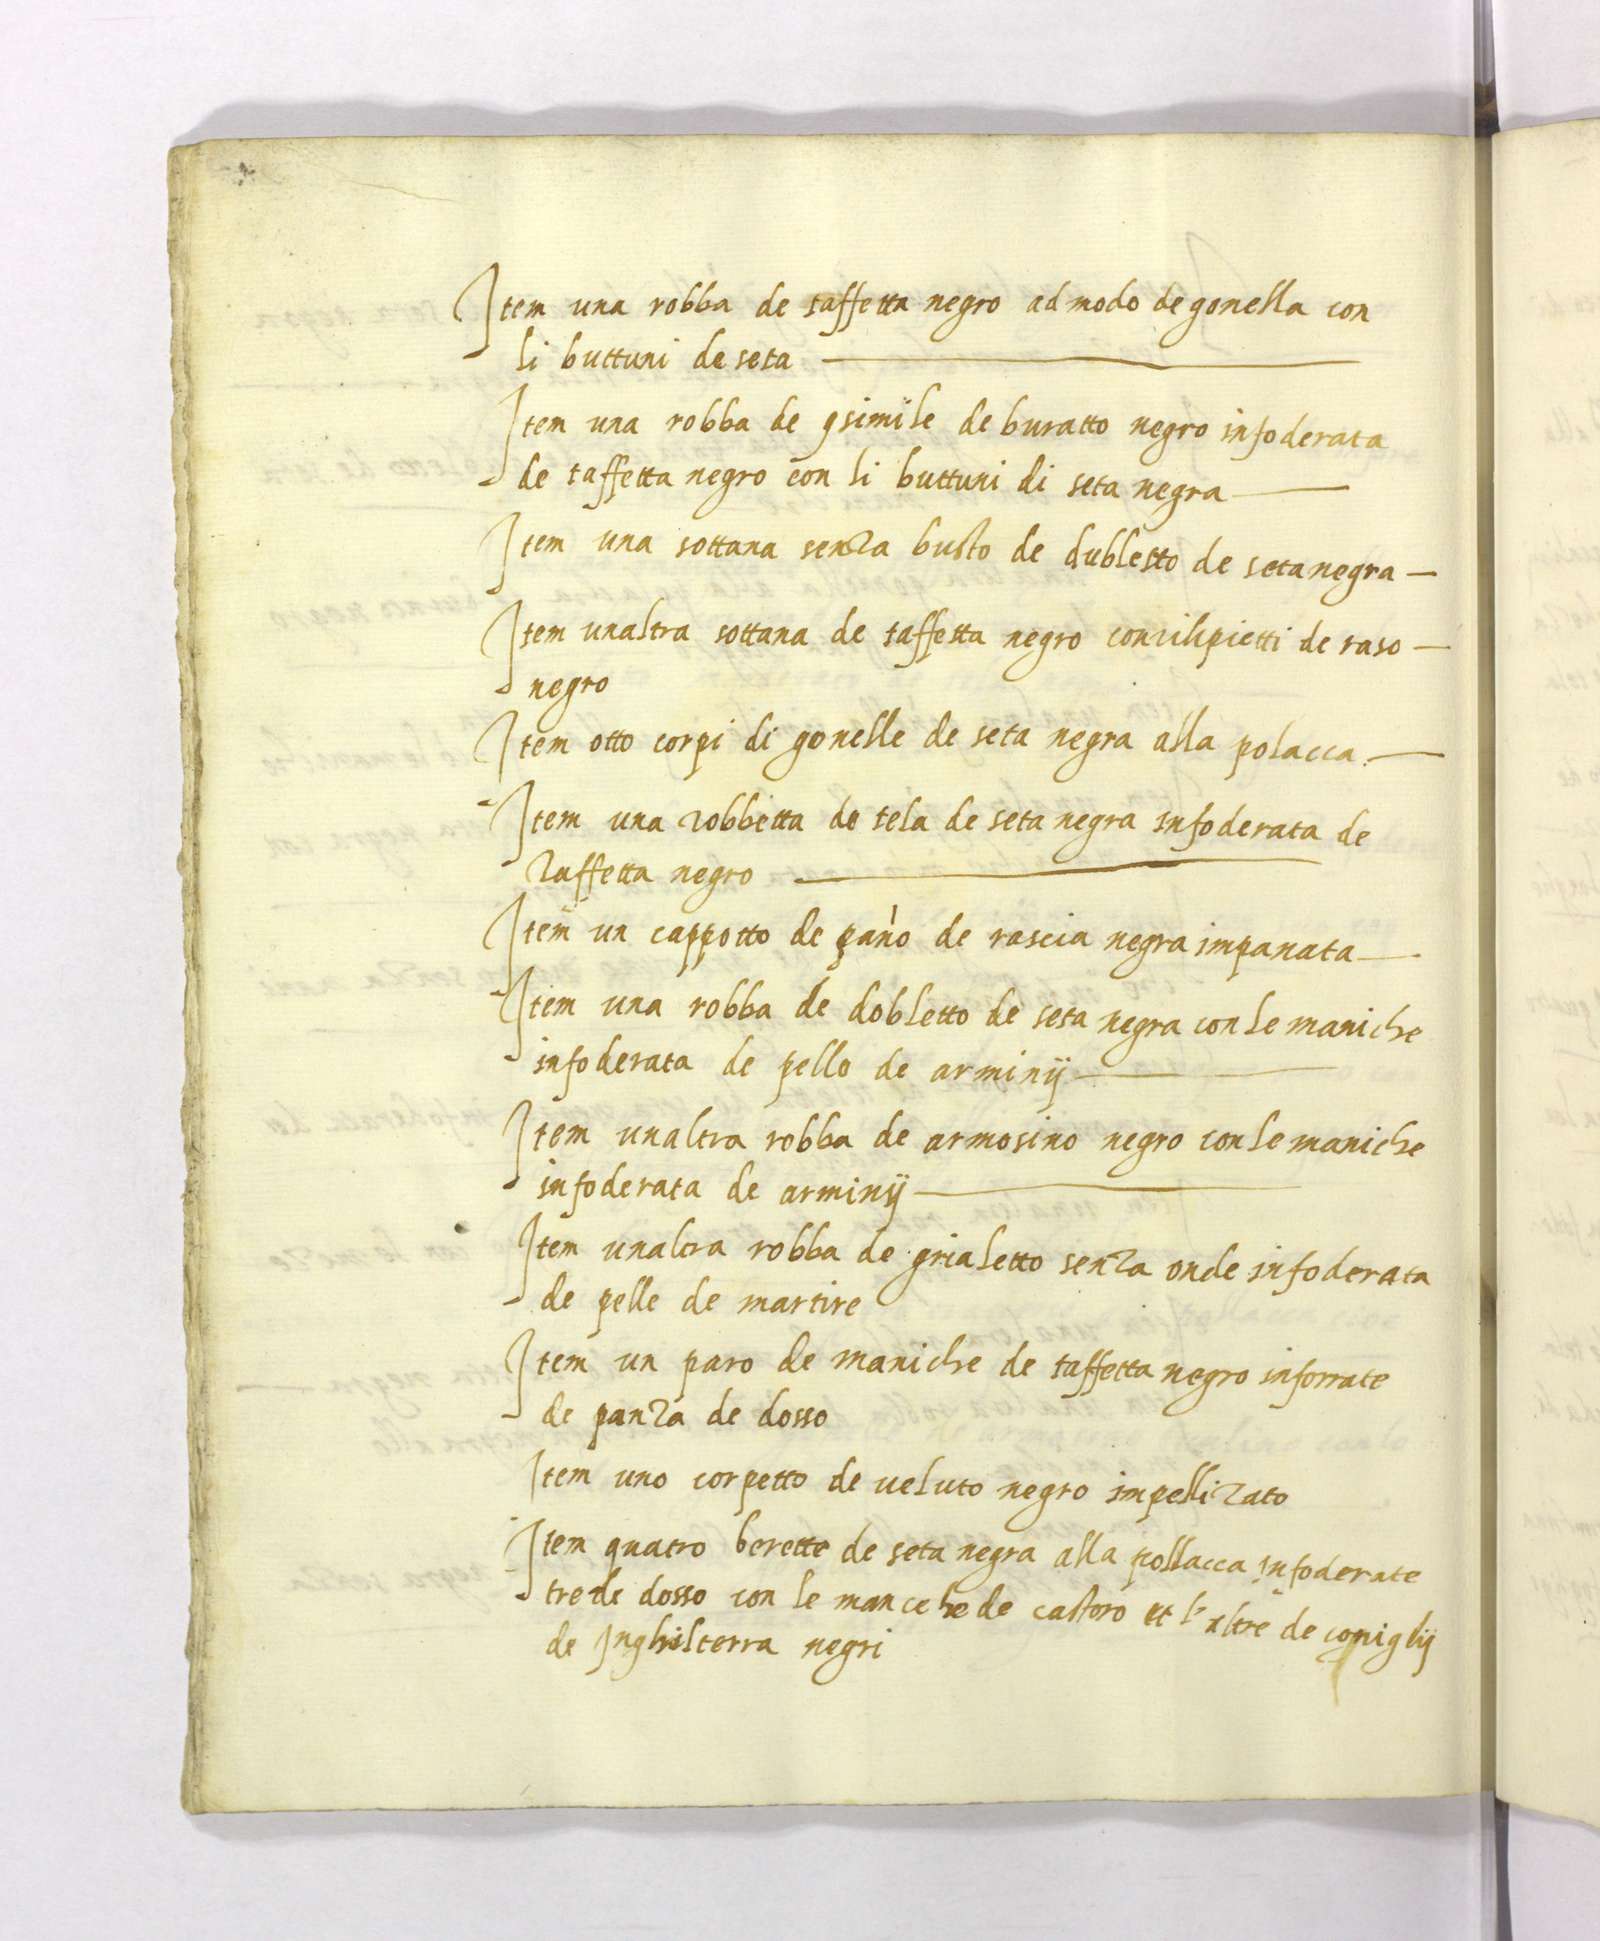 Item una robba de taffetta negro ad modo de gonella con
li buttuni de seta
Item una robba de qsimile de buratto negro infoderata
de taffetta negro con li buttuni di seta negra
Item una sottana senza busto de dubletto de seta negra
Item unaltra sottana de taffetta negro con li pietti de raso
negro
Item otto corpi di gonelle de seta negra alla polacca
Item una robbetta de tela de seta negra infoderata de
taffetta negro
Item un cappotto de panno de rascia negra impanata
Item una robba de dobletto de seta negra con le maniche
infoderata de pelle de arminij
Item unaltra robba de armosino negro con le maniche
infoderata de arminij
Item unaltra robba de grialetto senza onde infoderata
de pelle de martire
Item un paro de maniche de taffetta negro inforrate
de panza de dosso
Item uno corpetto de veluto negro impellizato
Item quatro berette de seta negra alla pollacca infoderate
tre de dosso con le manceche de castoro et l'altre de coniglij
de Inghilterra negri